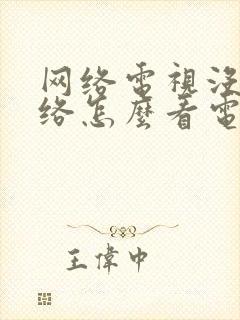 网络電視没
络怎麼看電
王偉中